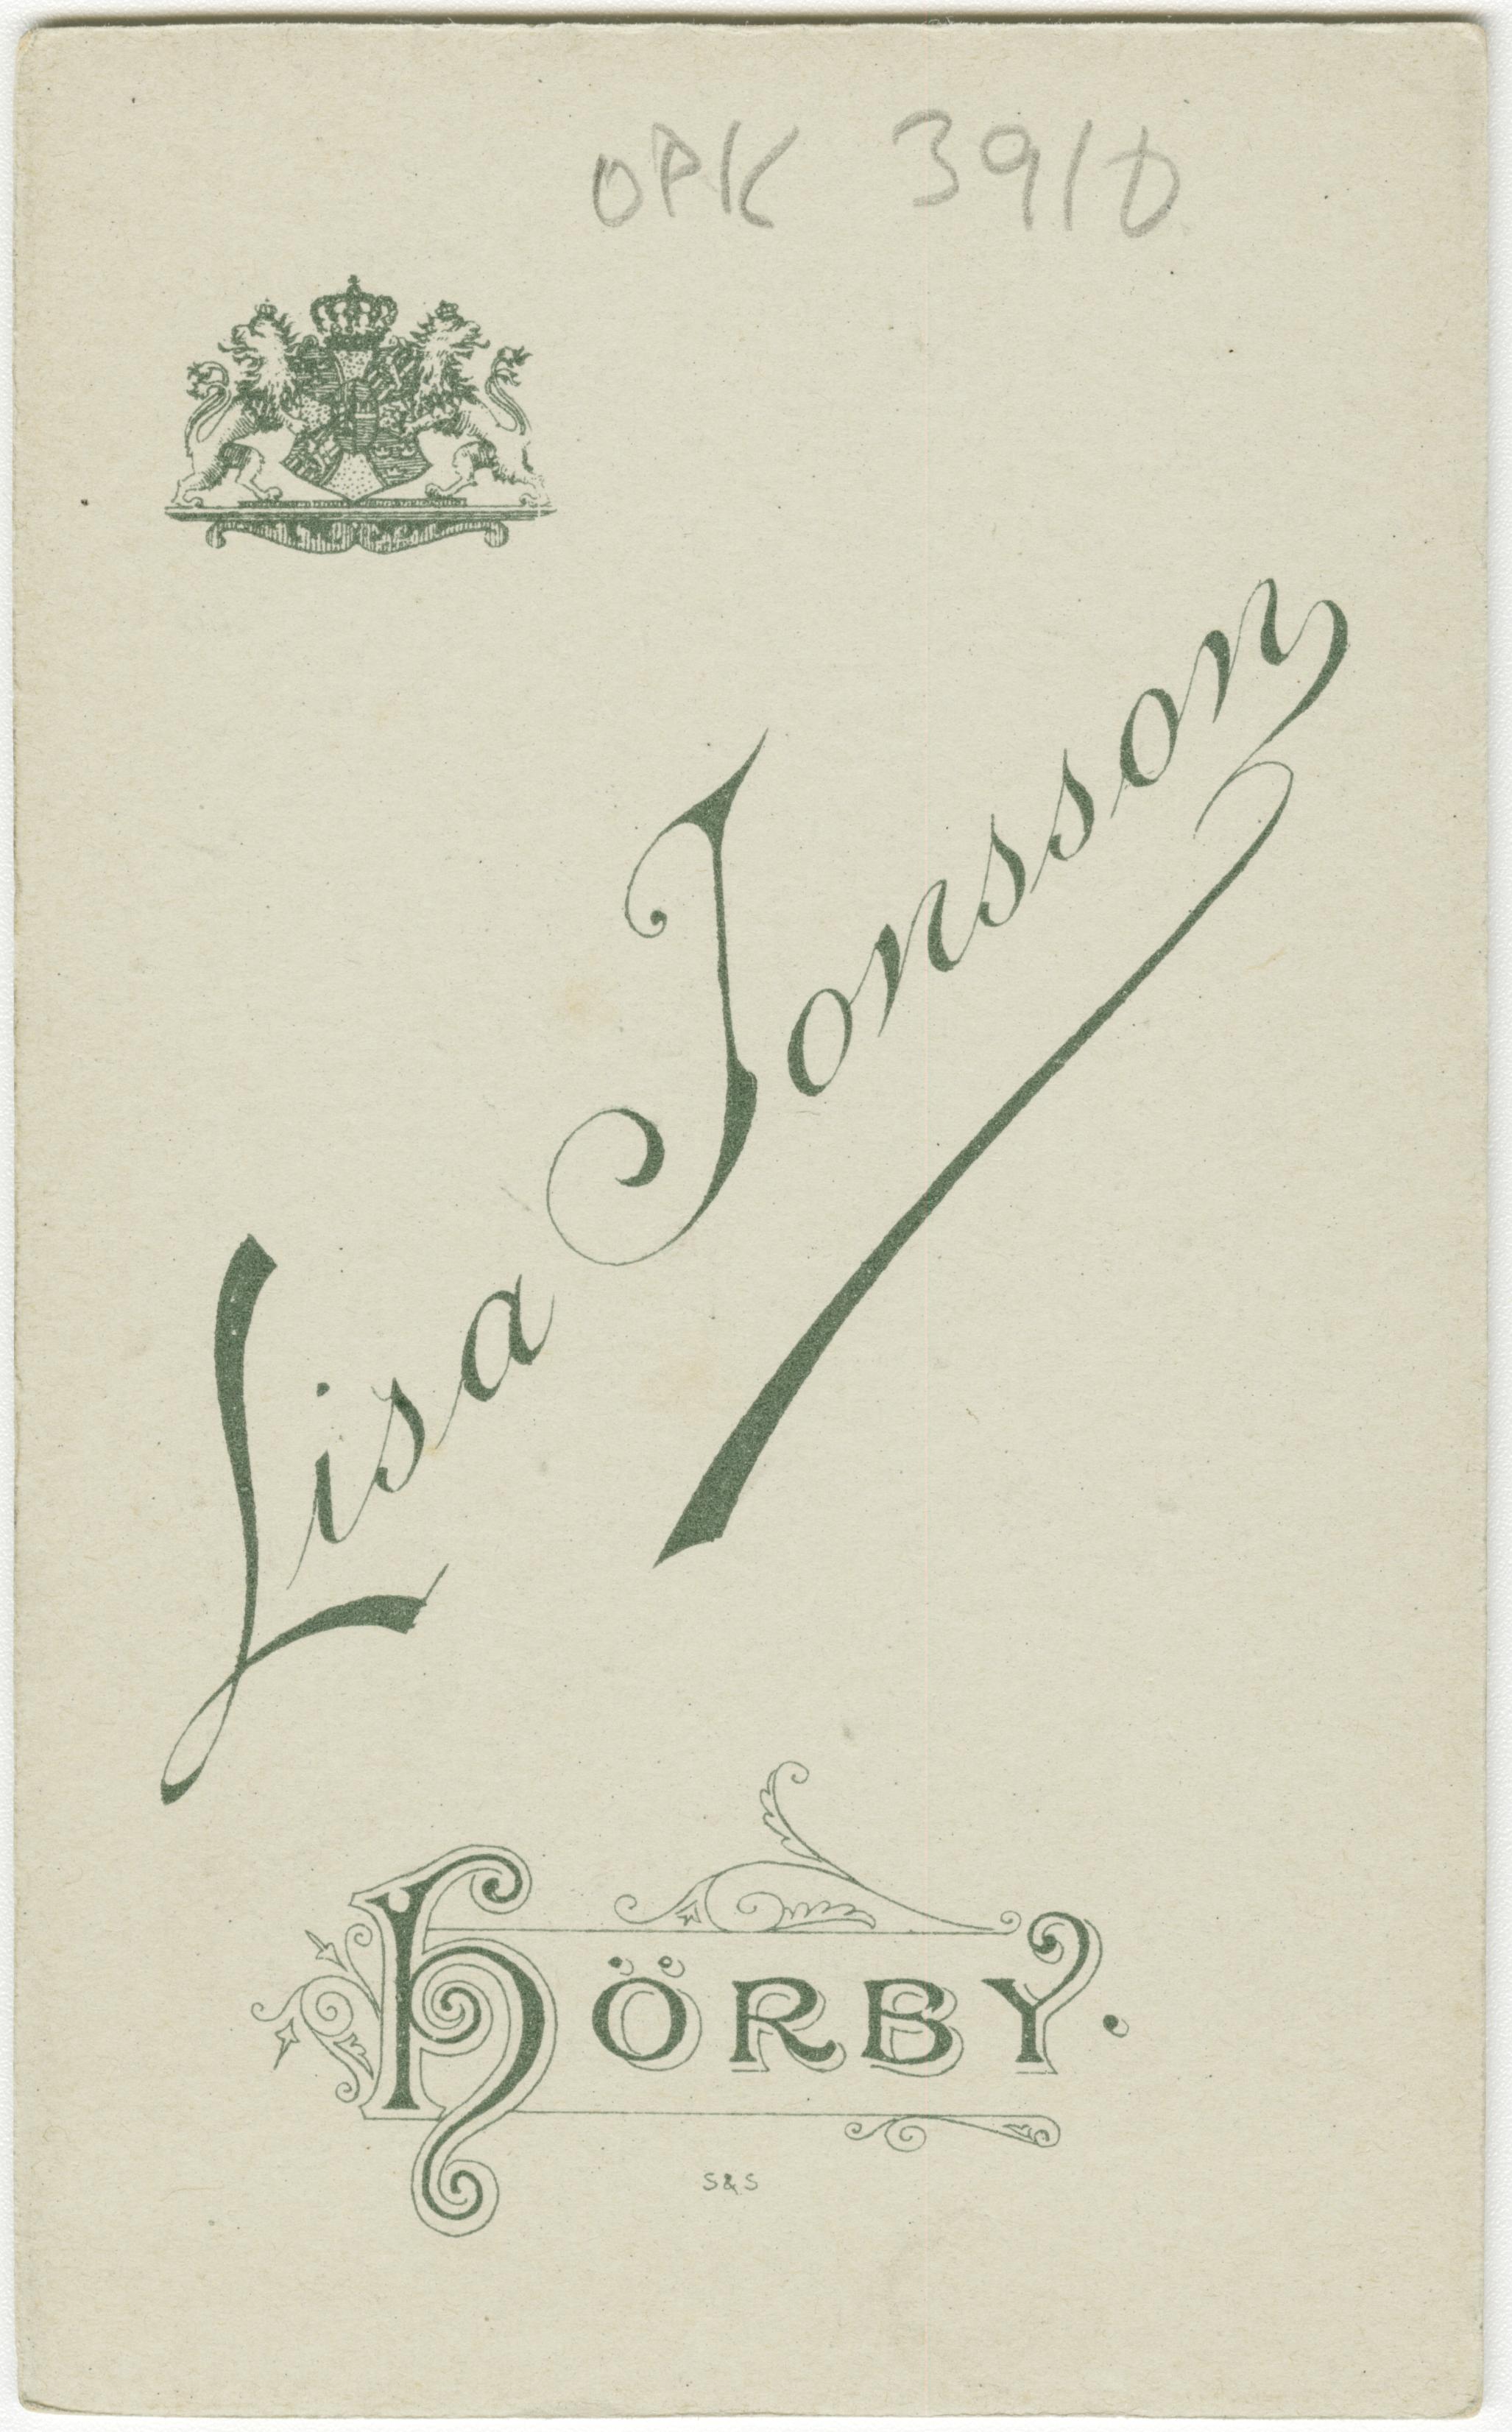 OPK 3910
Lisa Jonsson
HÖRBY.
S&S